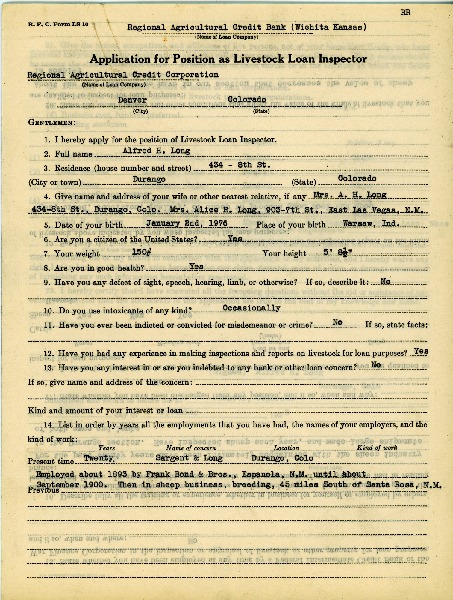 RR
R. F. C. Form LS 10
Regional Agricultural Credit Bank (Wichita Kansas)
(Name of Loan Company)
Application for Position as Livestock Loan Inspector
Regional Agricultural Credit Corporation
(Name of Loan Company)
Denver Colorado
(City) (State)
GENTLEMEN:
1. I hereby apply for the position of Livestock Loan Inspector.
2. Full name Alfred H. Long
3. Residence (house number and street) 434 - 8th St.
(City or town) Durango (State) Colorado
4. Give name and address of your wife or other nearest relative, if any Mrs. A. H. Long
434-8th St. Durango, Colo. Mrs. Alice R. Long, 903-7th St., East Las Vegas, N.M.
5. Date of your birth January 2nd, 1876 Place of your birth Warsaw, Ind.
6. Are you a citizen of the United States? Yes
7. Your weight 150# Your height 5' 8½"
8. Are you in good health? Yes
9. Have you any defect of sight, speech, hearing, limb, or otherwise? If so, describe it: No
10. Do you use intoxicants of any kind? Occasionally
11. Have you ever been indicted or convicted for misdemeanor or crime? No If so, state facts:
12. Have you had any experience in making inspections and reports on livestock for loan purposes? Yes
13. Have you any interest in or are you indebted to any bank or other loan concern? No
If so, give name and address of the concern:
Kind and amount of your interest or loan
14. List in order by years all the employments that you have had, the names of your employers, and the
kind of work:
Years Name of concern Location Kind of work
Present time Twenty, Sargent & Long Durango, Colo
Employed about 1893 by Frank Bond & Bros., Espanola, N.M. until about
September 1900. Then in sheep business, breeding, 45 miles South of Santa Rosa, N.M.
Previous